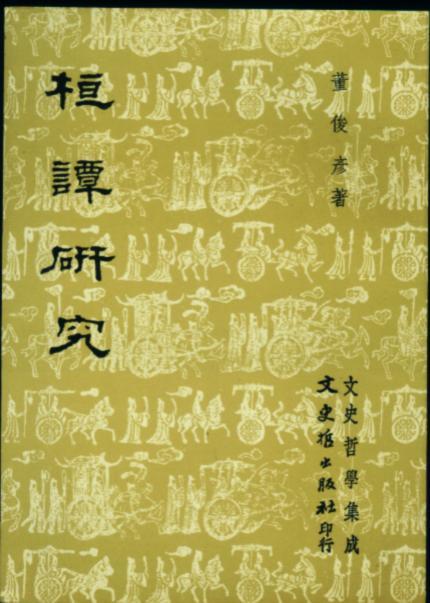 桓譚研究
董俊彦著
文史哲學集成
文史哲出版社印行